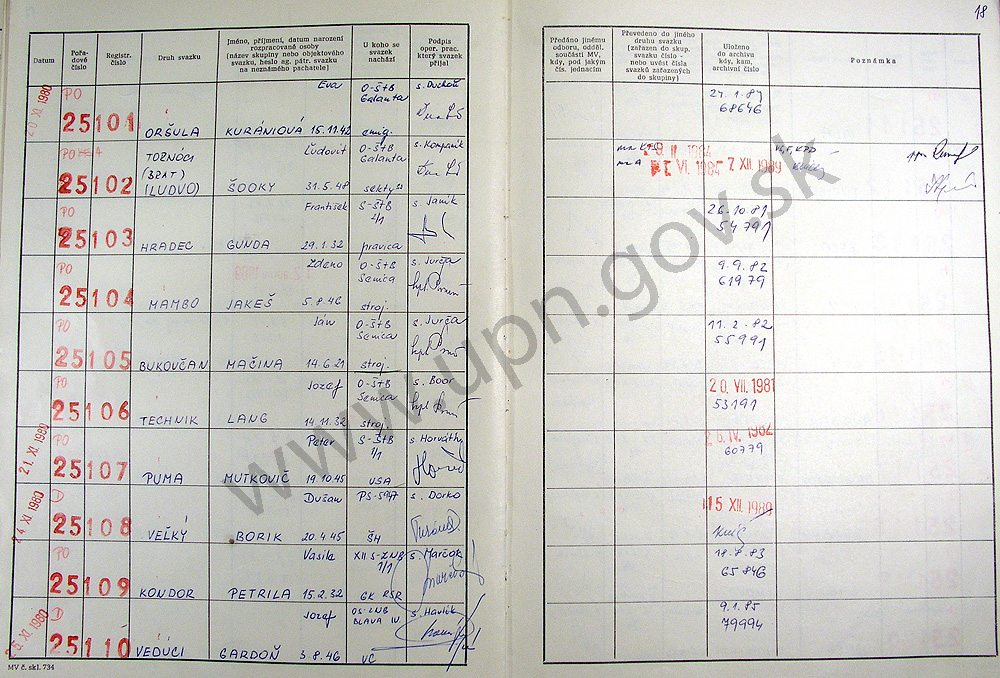 18
Datum
Pořa-
dové
číslo
Registr.
číslo
Druh svazku
Jméno, příjmení, datum narození
rozpracované osoby
(název skupiny nebo objektového
svazku, heslo ag. pátr. svazku
na neznámého pachatele)
U koho se
svazek
nachází
Podpis
oper. prac.
který svazek
přijal
Předáno jinému
odboru, odděl.
součásti MV,
kdy, pod jakým
čís. jednacím
Převedeno do jiného
druhu svazku
(zařazen do skup.
svazku číslo -
nebo uvést čísla
svazků zařazených
do skupiny)
Uloženo
do archivu
kdy, kam,
archivní číslo
Poznámka
20 XI. 1980
PO
25101
ORŠULA
Eva
KURÁNIOVÁ 15.11.42
O-ŠtB
Galanta
emig.
s. Duchoň
24.1.84
68646
PO
25102
TOZNÓCI
(BRAT)
(LUDVO)
Ľudovít
ŠOOKY 31.5.48
O-ŠtB
Galanta
sekty
s. Kompaník
VI. 1984
7. XII. 1989
PO
25103
HRADEC
František
GUNDA 29.1.32
S-ŠtB
2/1
pravica
s. Janík
26.10.81
54791
PO
25104
MAMBO
Zdeno
JAKEŠ 5.8.46
O-ŠtB
Senica
stroj.
s. Jurča
9.9.82
61979
PO
25105
BUKOVČAN
Ján
MAČINA 14.6.21
O-ŠtB
Senica
stroj.
s. Jurča
11.2.82
55991
PO
25106
TECHNIK
Jozef
LANG 14.11.32
O-ŠtB
Senica
stroj.
s. Boor
20. VII. 1981
53191
21. XI. 1980
PO
25107
PUMA
Peter
MUTKOVIČ 19.10.45
S-ŠtB
1/1
USA
s. Horváthy
26. IV. 1982
60779
24. XI. 1980
D
25108
VEĽKÝ
Dušan
BORIK 20.4.45
PS-5947
ŠH
s. Dorko
15 XII. 1989
PO
25109
KONDOR
Vasila
PETRILA 15.2.32
XII S-ZNB
1/1
GK RSR
s. Marčok
18.8.83
65846
25. XI. 1980
D
25110
VEDÚCI
Jozef
GARDOŇ 3.8.46
OS-ZNB
BLAVA IV.
VČ
s. Havlík
9.1.85
79994
MV č. skl. 734
www.upn.gov.sk